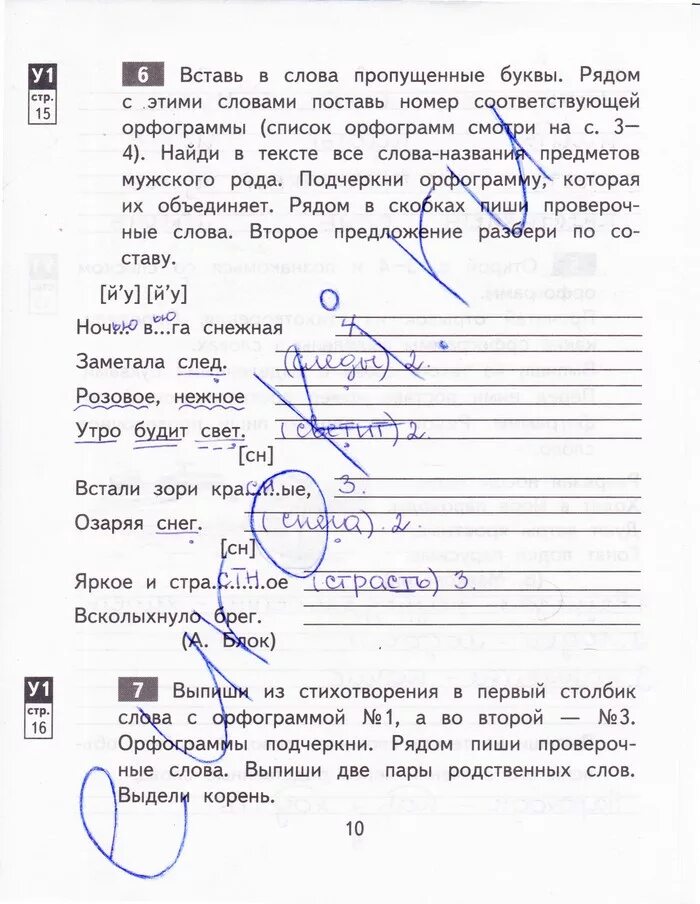 У1
стр.
15
6 Вставь в слова пропущенные буквы. Рядом
с этими словами поставь номер соответствующей
орфограммы (список орфограмм смотри на с. 3—
4). Найди в тексте все слова-названия предметов
мужского рода. Подчеркни орфограмму, которая
их объединяет. Рядом в скобках пиши провероч-
ные слова. Второе предложение разбери по со-
ставу.
[й'у] [й'у]
Ноч...ью в...ью га снежная 4.
Заметала след. (следы) 2.
Розовое, нежное
Утро будит свет. (светит) 2.
[сн]
Встали зори кра...сн...ые, 3.
Озаряя снег. (снега) 2.
[сн]
Яркое и стра...стн...ое (страсть) 3.
Всколыхнуло брег.
(А. Блок)
У1
стр.
16
7 Выпиши из стихотворения в первый столбик
слова с орфограммой №1, а во второй — №3.
Орфограммы подчеркни. Рядом пиши провероч-
ные слова. Выпиши две пары родственных слов.
Выдели корень.
10